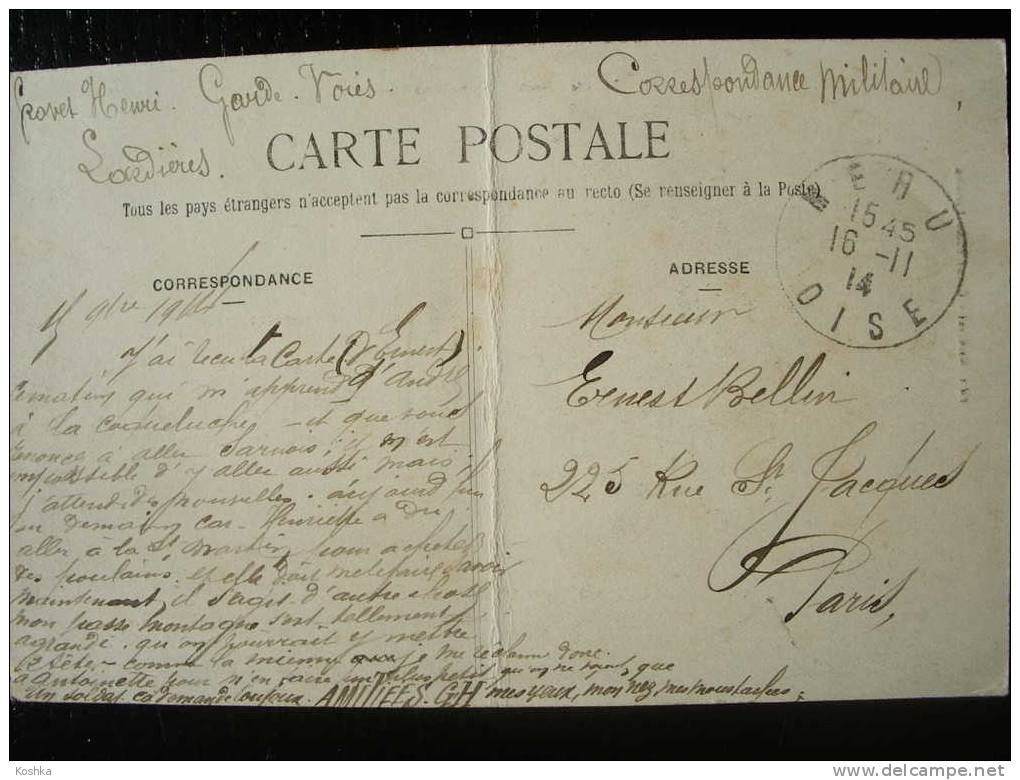 Henri. Garde. Voies.
Correspondance Militaire
Lardières.
CARTE POSTALE
Tous les pays étrangers n'acceptent pas la correspondance au recto (Se renseigner à la Poste)
CORRESPONDANCE
ADRESSE
15 9bre 1914
J'ai recu la Carte (d'Ernest)
matin, qui m'apprend d'André
à la coqueluche, et que vous
à aller Sarnois; il m'est
impossible d'y aller aussi mais
j'attend des nouvelles. aujourd'hui
ou demain car Henriette a du
aller à la St Martin pour acheter
des poulains et elle doit me le faire savoir
maintenant, il s'agit d'autre chose
mon passe montagne s'est tellement
agrandi qu'on pourrait y mettre
12 têtes comme la mienne je me réclame donc
à Antoinette pour m'en faire un plus petit qu'on ne voyent, que
un soldat ça demande toujours. AMITIEES. GH mes yeux, mon nez, mes moustaches;
Monsieur
Ernest Bellin
225 Rue St. Jacques
Paris,
RU
15 45
16 -11
14
OISE
Koshka